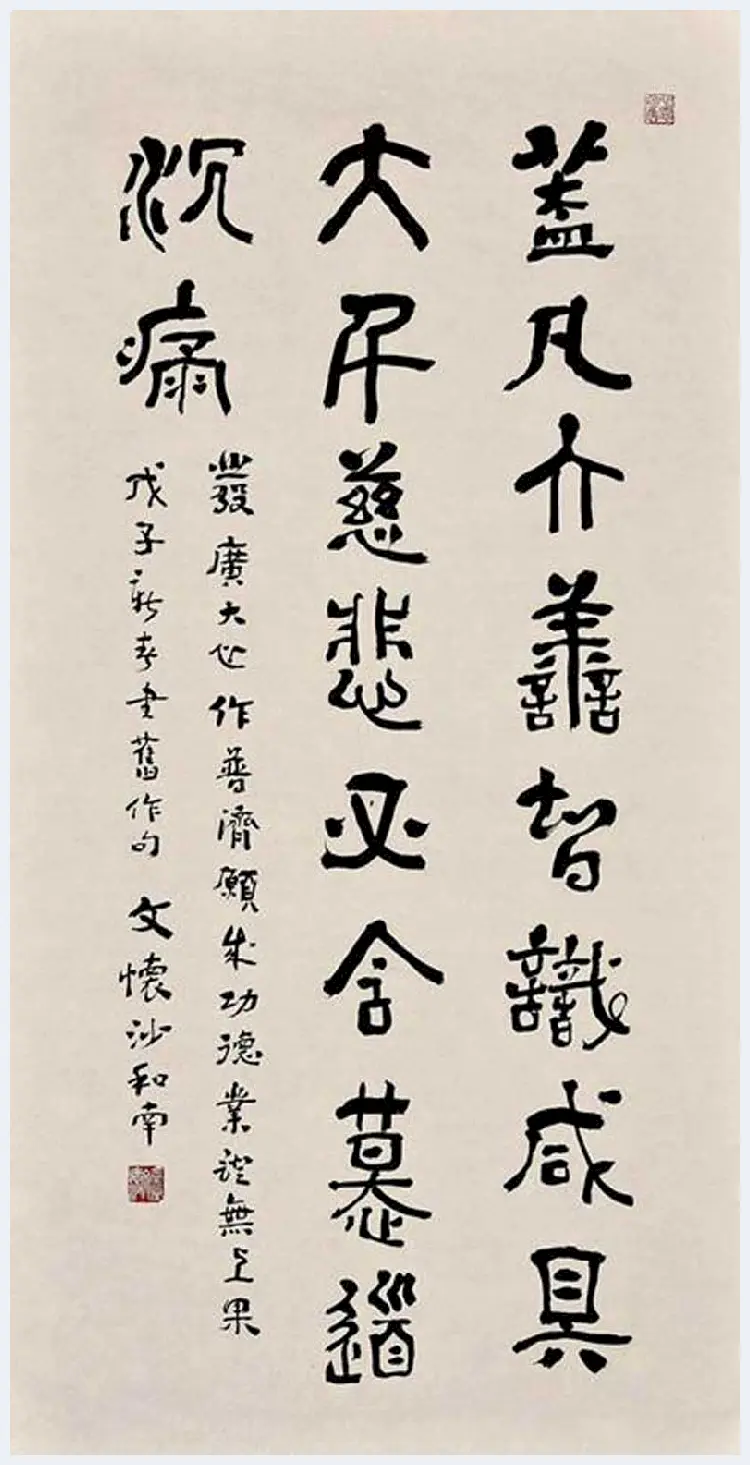 蓋凡亣譱智識咸具
大慈悲必含慕道
沉痛
發廣大心作普濟願成功德業證無上果
戊子新春書舊作句 文懷沙和南